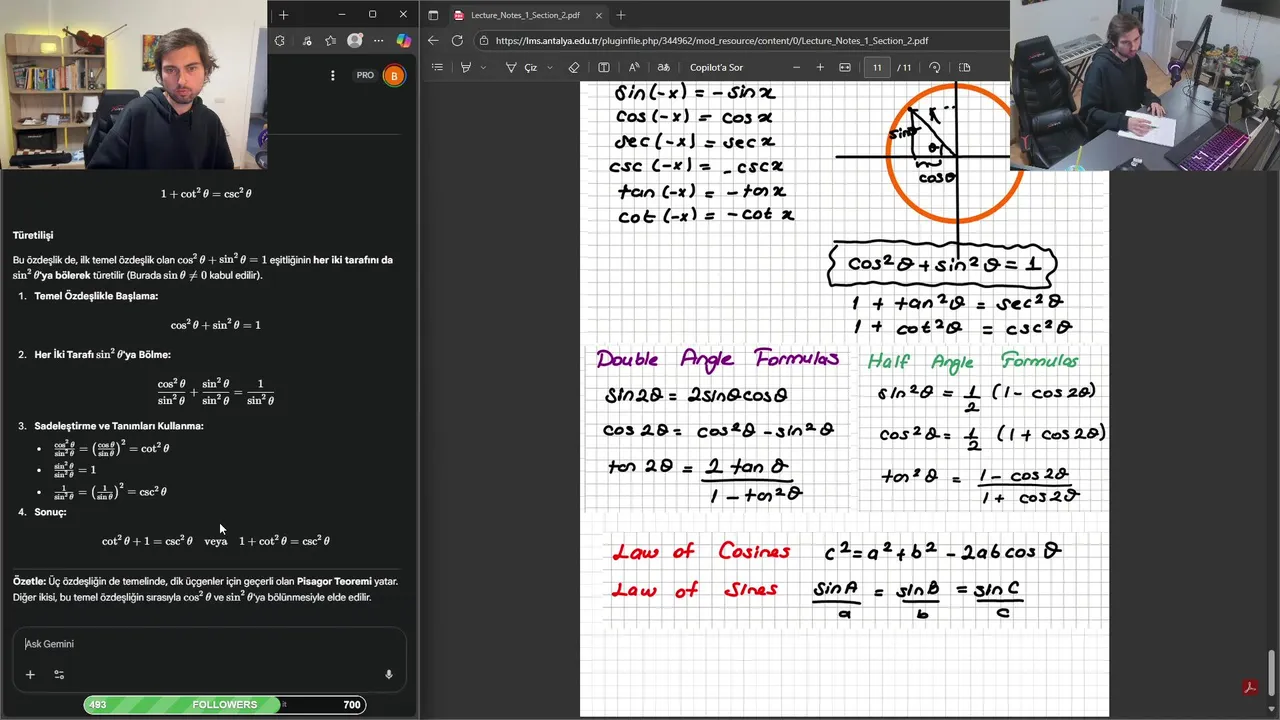 PRO
B
1 + cot² θ = csc² θ
Türetilişi
Bu özdeşlik de, ilk temel özdeşlik olan cos² θ + sin² θ = 1 eşitliğinin her iki tarafını da
sin² θ'ya bölerek türetilir (Burada sin θ ≠ 0 kabul edilir).
1. Temel Özdeşlikle Başlama:
cos² θ + sin² θ = 1
2. Her İki Tarafı sin² θ'ya Bölme:
cos² θ/sin² θ + sin² θ/sin² θ = 1/sin² θ
3. Sadeleştirme ve Tanımları Kullanma:
• cos² θ/sin² θ = (cos θ/sin θ)² = cot² θ
• sin² θ/sin² θ = 1
• 1/sin² θ = (1/sin θ)² = csc² θ
4. Sonuç:
cot² θ + 1 = csc² θ veya 1 + cot² θ = csc² θ
Özetle: Üç özdeşliğin de temelinde, dik üçgenler için geçerli olan Pisagor Teoremi yatar.
Diğer ikisi, bu temel özdeşliğin sırasıyla cos² θ ve sin² θ'ya bölünmesiyle elde edilir.
Ask Gemini
493 FOLLOWERS 700
Lecture_Notes_1_Section_2.pdf
https://lms.antalya.edu.tr/pluginfile.php/344962/mod_resource/content/0/Lecture_Notes_1_Section_2.pdf
Çiz
Copilot'a Sor
11 / 11
sin(-x) = -sinx
cos(-x) = cosx
sec(-x) = secx
csc(-x) = -cscx
tan(-x) = -tanx
cot(-x) = -cot x
sinθ
θ
cosθ
cos²θ + sin²θ = 1
1 + tan²θ = sec²θ
1 + cot²θ = csc²θ
Double Angle Formulas
sin2θ = 2sinθcosθ
cos2θ = cos²θ - sin²θ
tan 2θ = 2 tan θ/1 - tan²θ
Half Angle Formulas
sin²θ = 1/2 (1 - cos2θ)
cos²θ = 1/2 (1 + cos2θ)
tan²θ = 1 - cos2θ/1 + cos2θ
Law of Cosines c² = a² + b² - 2ab cos θ
Law of Sines sinA/a = sinB/b = sinC/c